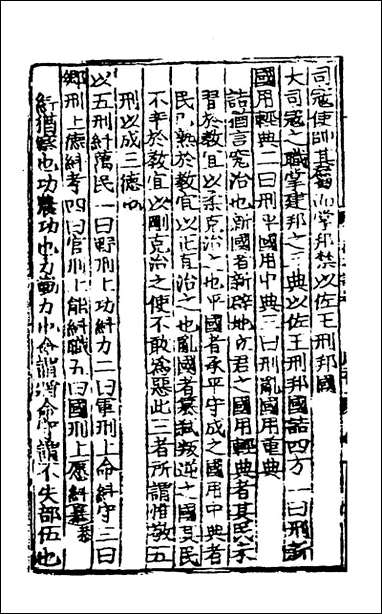 司寇使帥其屬而掌邦禁以佐王刑邦國
大司寇之職掌建邦之三典以佐王刑邦國詰四方一曰刑新
國用輕典二曰刑平國用中典三曰刑亂國用重典
詰猶言究治也新國者新辟地立君之國用輕典者其民未
習於教宜以柔克治之也平國者承平守成之國用中典者
民已熟於教宜以正直治之也亂國者篡弒叛逆之國其民
不率於教宜以剛克治之使不敢為惡此三者所謂惟敬五
刑以成三德也
以五刑糾萬民一曰野刑上功糾力二曰軍刑上命糾守三曰
鄉刑上德糾孝四曰官刑上能糾職五曰國刑上愿糾暴
糾猶察也功農功也力勤力也命謂將命守謂不失部伍也